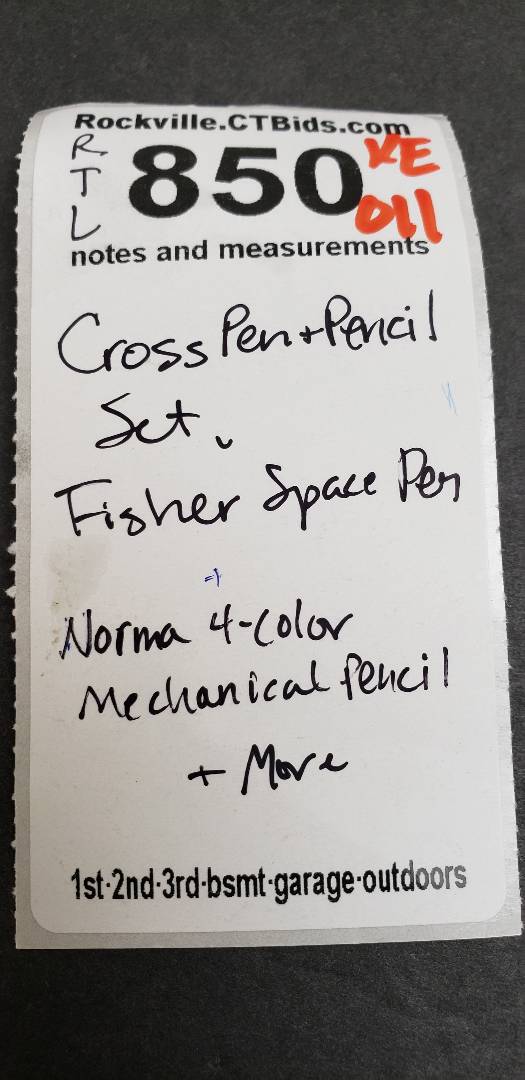 Rockville.CTBids.com
R
T
L
850
KE
011
notes and measurements
Cross Pen+Pencil
Set,
Fisher Space Pen
Norma 4-Color
Mechanical Pencil
+ More
1st·2nd·3rd·bsmt·garage·outdoors